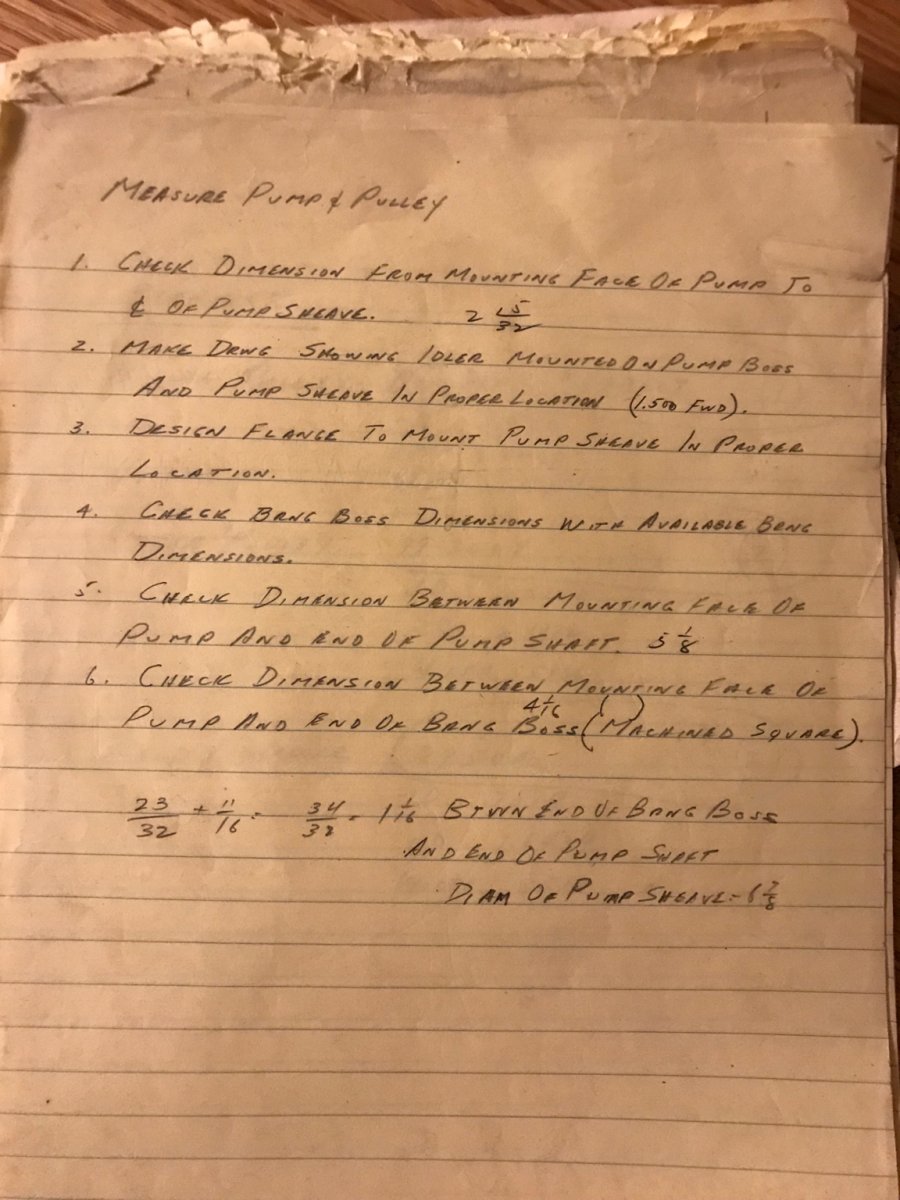 MEASURE PUMP & PULLEY
1. CHECK DIMENSION FROM MOUNTING FACE OF PUMP TO
℄ OF PUMP SHEAVE. 2 15/32
2. MAKE DRWG SHOWING IDLER MOUNTED ON PUMP BOSS
AND PUMP SHEAVE IN PROPER LOCATION (1.500 FWD).
3. DESIGN FLANGE TO MOUNT PUMP SHEAVE IN PROPER
LOCATION.
4. CHECK BRNG BOSS DIMENSIONS WITH AVAILABLE BRNG
DIMENSIONS.
5. CHECK DIMENSION BETWEEN MOUNTING FACE OF
PUMP AND END OF PUMP SHAFT. 5 1/8
6. CHECK DIMENSION BETWEEN MOUNTING FACE OF
4 1/16
PUMP AND END OF BRNG BOSS (MACHINED SQUARE).
23/32 + 11/16 = 34/32 = 1 1/16 BTWN END OF BRNG BOSS
AND END OF PUMP SHAFT
DIAM OF PUMP SHEAVE - 6 7/8